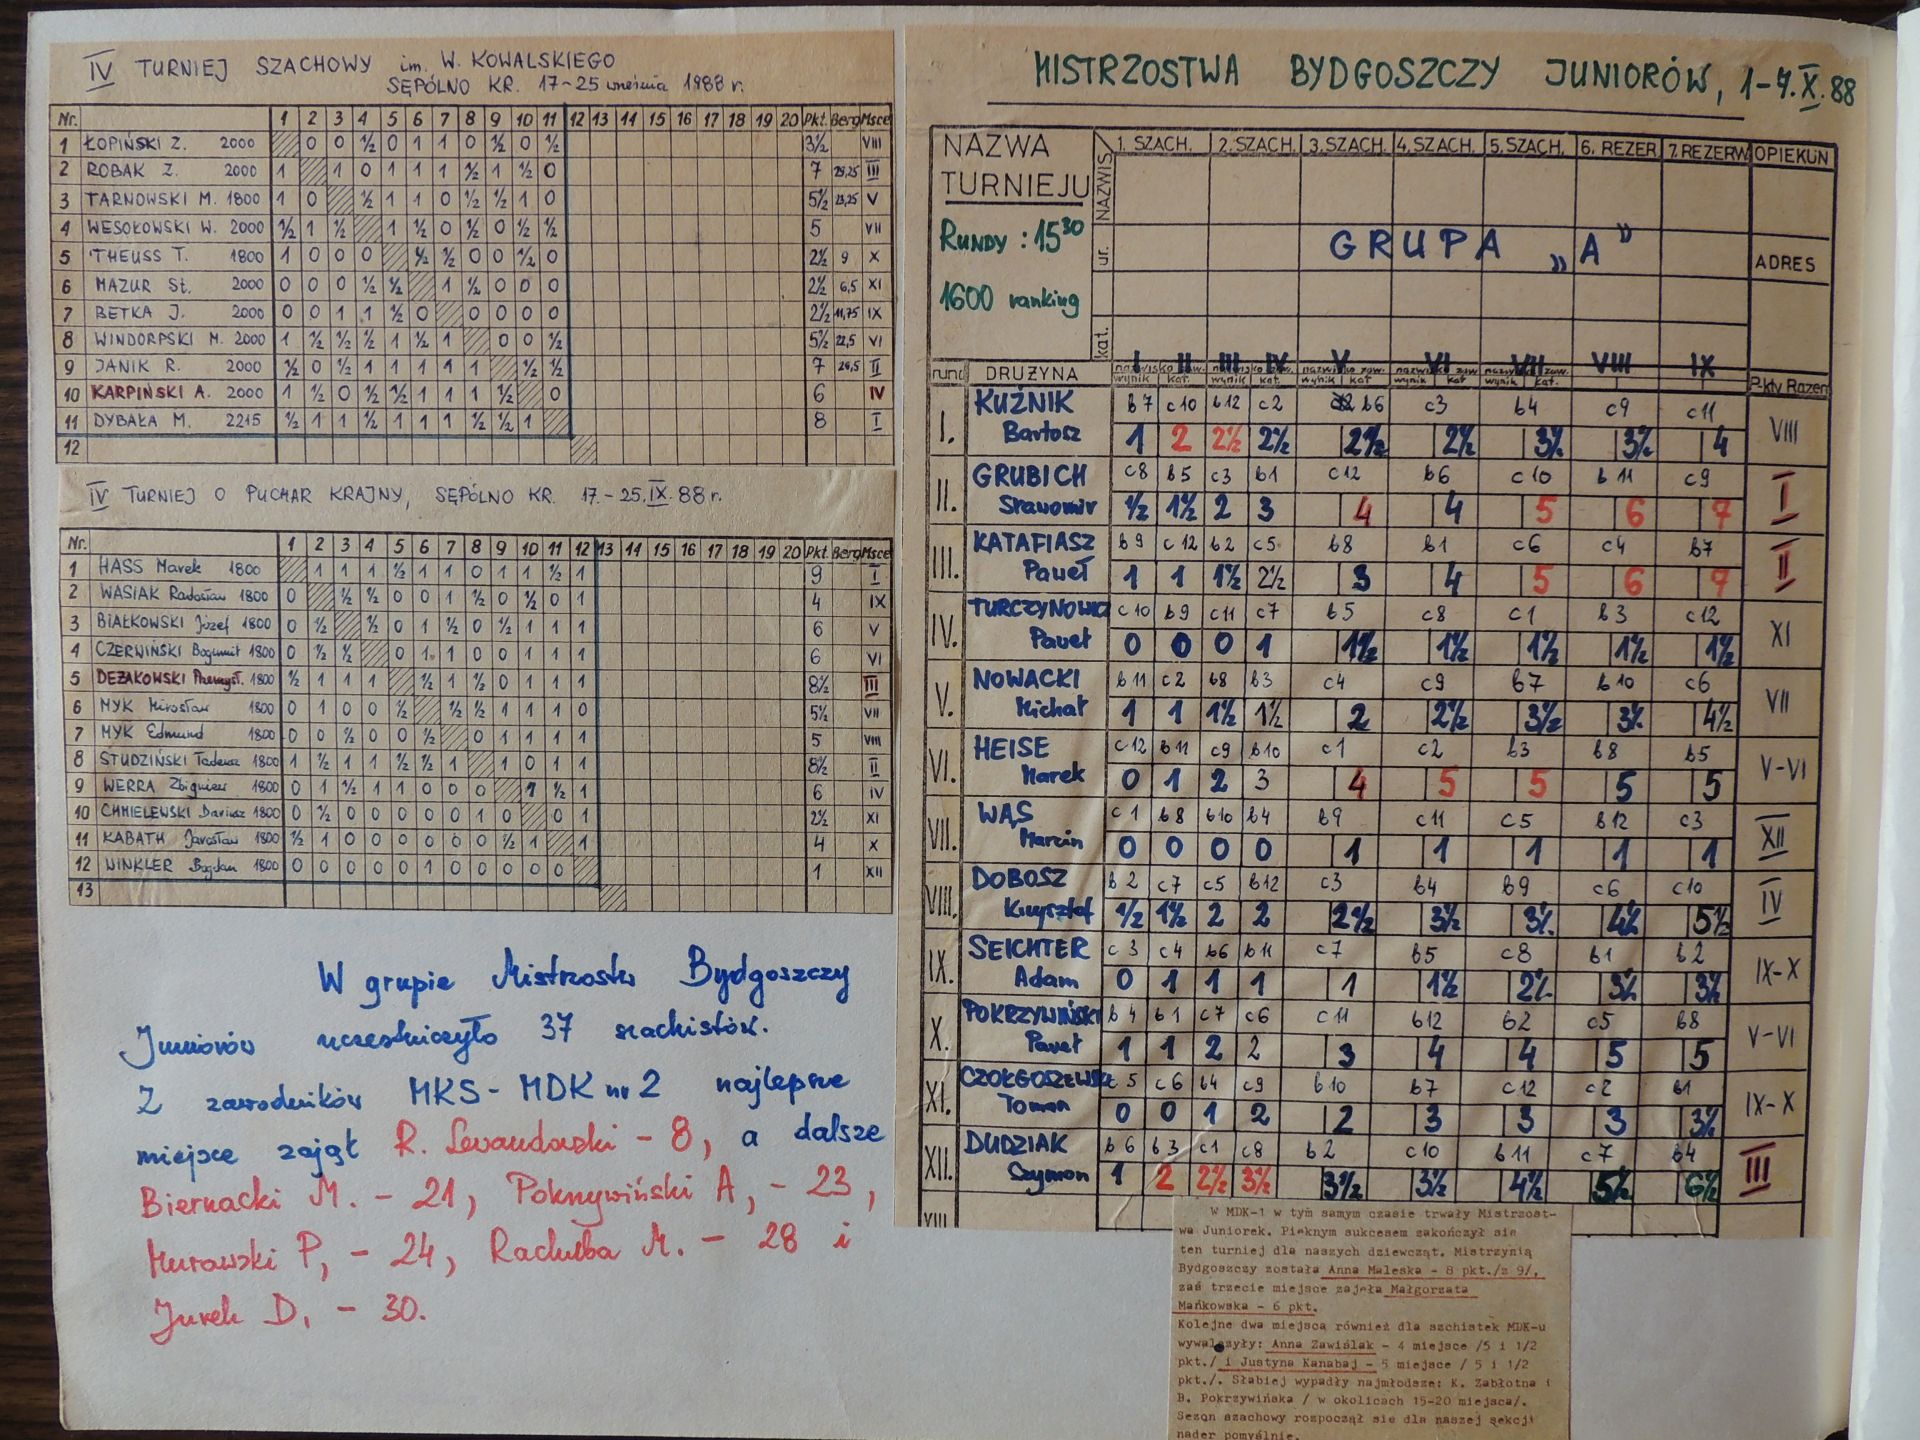 IV TURNIEJ SZACHOWY im. W. KOWALSKIEGO
SĘPÓLNO KR. 17-25 września 1988 r.
Nr. 1 2 3 4 5 6 7 8 9 10 11 12 13 14 15 16 17 18 19 20 Pkt. Berg Msce
1 ŁOPIŃSKI Z. 2000 0 0 ½ 0 1 1 0 ½ 0 ½ 3½ VIII
2 ROBAK Z. 2000 1 1 0 1 1 1 ½ 1 ½ 0 7 III
3 TARNOWSKI M. 1800 1 0 ½ 1 1 0 ½ ½ 1 0 5½ 23,25 V
4 WESOŁOWSKI W. 2000 ½ 1 ½ 1 ½ 0 ½ 0 ½ ½ 5 VII
5 THEUSS T. 1800 1 0 0 0 ½ ½ 0 0 ½ 0 2½ 9 X
6 MAZUR St. 2000 0 0 0 ½ ½ 1 ½ 0 0 0 2½ 6,5 XI
7 BETKA J. 2000 0 0 1 1 ½ 0 0 0 0 0 2½ 11,75 IX
8 WINDORPSKI M. 2000 1 ½ ½ ½ 1 ½ 1 0 0 ½ 5½ 22,5 VI
9 JANIK R. 2000 ½ 0 ½ 1 1 1 1 1 ½ ½ 7 26,5 II
10 KARPIŃSKI A. 2000 1 ½ 0 ½ ½ 1 1 1 ½ 0 6 IV
11 DYBAŁA M. 2215 ½ 1 1 ½ 1 1 1 ½ ½ 1 8 I
12
IV TURNIEJ O PUCHAR KRAJNY, SĘPÓLNO KR. 17.-25.IX.88 r.
Nr. 1 2 3 4 5 6 7 8 9 10 11 12 13 14 15 16 17 18 19 20 Pkt. Berg Msce
1 HASS Marek 1800 1 1 1 ½ 1 1 0 1 1 ½ 1 9 I
2 WASIAK Radosław 1800 0 ½ ½ 0 0 1 ½ 0 ½ 0 1 4 IX
3 BIAŁKOWSKI Józef 1800 0 ½ ½ 0 1 ½ 0 ½ 1 1 1 6 V
4 CZERWIŃSKI Bogumił 1800 0 ½ ½ 0 1 1 0 0 1 1 1 6 VI
5 DEZAKOWSKI Przemysł. 1800 ½ 1 1 1 ½ 1 ½ 0 1 1 1 8½ III
6 MYK Mirosław 1800 0 1 0 0 ½ ½ ½ 1 1 1 0 5½ VII
7 MYK Edmund 1800 0 0 ½ 0 0 ½ 0 1 1 1 1 5 VIII
8 STUDZIŃSKI Tadeusz 1800 1 ½ 1 1 ½ ½ 1 1 0 1 1 8½ II
9 WERRA Zbigniew 1800 0 1 ½ 1 1 0 0 0 1 ½ 1 6 IV
10 CHMIELEWSKI Dariusz 1800 0 ½ 0 0 0 0 0 1 0 0 1 2½ XI
11 KABATH Jarosław 1800 ½ 1 0 0 0 0 0 0 ½ 1 1 4 X
12 WINKLER Bogdan 1800 0 0 0 0 0 1 0 0 0 0 0 1 XII
13
W grupie Mistrzostw Bydgoszczy
Juniorów uczestniczyło 37 szachistów.
Z zawodników MKS-MDK nr 2 najlepsze
miejsce zajął R. Lewandowski - 8, a dalsze
Biernacki M. - 21, Pokrzywiński A, - 23,
Murawski P, - 24, Radulba M. - 28 i
Jurek D, - 30.
MISTRZOSTWA BYDGOSZCZY JUNIORÓW, 1-7.X.88
NAZWA TURNIEJU NAZWIS. 1. SZACH. 2. SZACH. 3. SZACH. 4. SZACH. 5. SZACH. 6. REZER 7. REZERW OPIEKUN
RUNDY : 15³⁰ ur. GRUPA „A” ADRES
1600 ranking kat.
I II III IV V VI VII VIII IX
rund DRUŻYNA nazwisko zaw. wynik kat. P-kty Razem
I. KUŹNIK b7 c10 b12 c2 b6 c3 b4 c9 c11
Bartosz 1 2 2½ 2½ 2½ 2½ 3½ 3½ 4 VIII
II. GRUBICH c8 b5 c3 b1 c12 b6 c10 b11 c9
Sławomir ½ 1½ 2 3 4 4 5 6 7 I
III. KATAFIASZ b9 c12 b2 c5 b8 b1 c6 c4 b7
Paweł 1 1 1½ 2½ 3 4 5 6 7 II
IV. TURCZYNOWICZ c10 b9 c11 c7 b5 c8 c1 b3 c12
Paweł 0 0 0 1 1½ 1½ 1½ 1½ 1½ XI
V. NOWACKI b11 c2 b8 b3 c4 c9 b7 b10 c6
Michał 1 1 1½ 1½ 2 2½ 3½ 3½ 4½ VII
VI. HEISE c12 b11 c9 b10 c1 c2 b3 b8 b5
Marek 0 1 2 3 4 5 5 5 5 V-VI
VII. WĄS c1 b8 b10 b4 b9 c11 c5 b12 c3
Marcin 0 0 0 0 1 1 1 1 1 XII
VIII. DOBOSZ b2 c7 c5 b12 c3 b4 b9 c6 c10
Krzysztof ½ 1½ 2 2 2½ 3½ 3½ 4½ 5½ IV
IX. SEICHTER c3 c4 b6 b11 c7 b5 c8 b1 b2
Adam 0 1 1 1 1 1½ 2½ 3½ 3½ IX-X
X. POKRZYWIŃSKI b4 b1 c7 c6 c11 b12 b2 c5 b8
Paweł 1 1 2 2 3 4 4 5 5 V-VI
XI. CZOŁGOSZEWSKI c5 c6 b4 c9 b10 b7 c12 c2 b1
Tomasz 0 0 1 2 2 3 3 3 3½ IX-X
XII. DUDZIAK b6 b3 c1 c8 b2 c10 b11 c7 b4
Szymon 1 2 2½ 3½ 3½ 3½ 4½ 5½ 6½ III
XIII
W MDK-1 w tym samym czasie trwały Mistrzost-
wa Juniorek. Pięknym sukcesem zakończył się
ten turniej dla naszych dziewcząt. Mistrzynią
Bydgoszczy została Anna Maleska - 8 pkt./z 9/,
zaś trzecie miejsce zajęła Małgorzata
Mańkowska - 6 pkt.
Kolejne dwa miejsca również dla szchistek MDK-u
wywalczyły: Anna Zawiślak - 4 miejsce /5 i 1/2
pkt./ i Justyna Kanabaj - 5 miejsce / 5 i 1/2
pkt./. Słabiej wypadły najmłodsze: K. Zabłotna i
B. Pokrzywińska / w okolicach 15-20 miejsca/.
Sezon szachowy rozpoczął się dla naszej sekcji
nader pomyślnie.